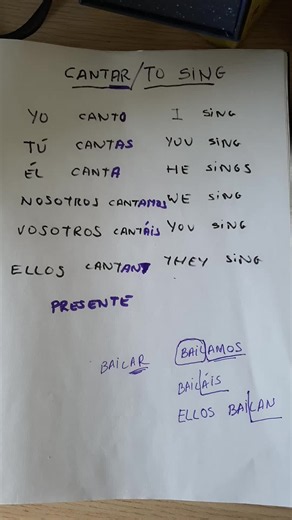 CANTAR/TO SING
YO CANTO I SING
TÚ CANTAS YOU SING
ÉL CANTA HE SINGS
NOSOTROS CANTAMOS WE SING
VOSOTROS CANTÁIS YOU SING
ELLOS CANTAN THEY SING
PRESENTE
BAILAR BAILAMOS
BAILÁIS
ELLOS BAILAN